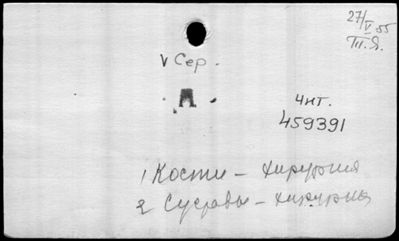 27/V 55
Тп.Я.
v Сер.
Д
Чит.
459391
1 Кости – хирургия
2 Суставы – хирургия